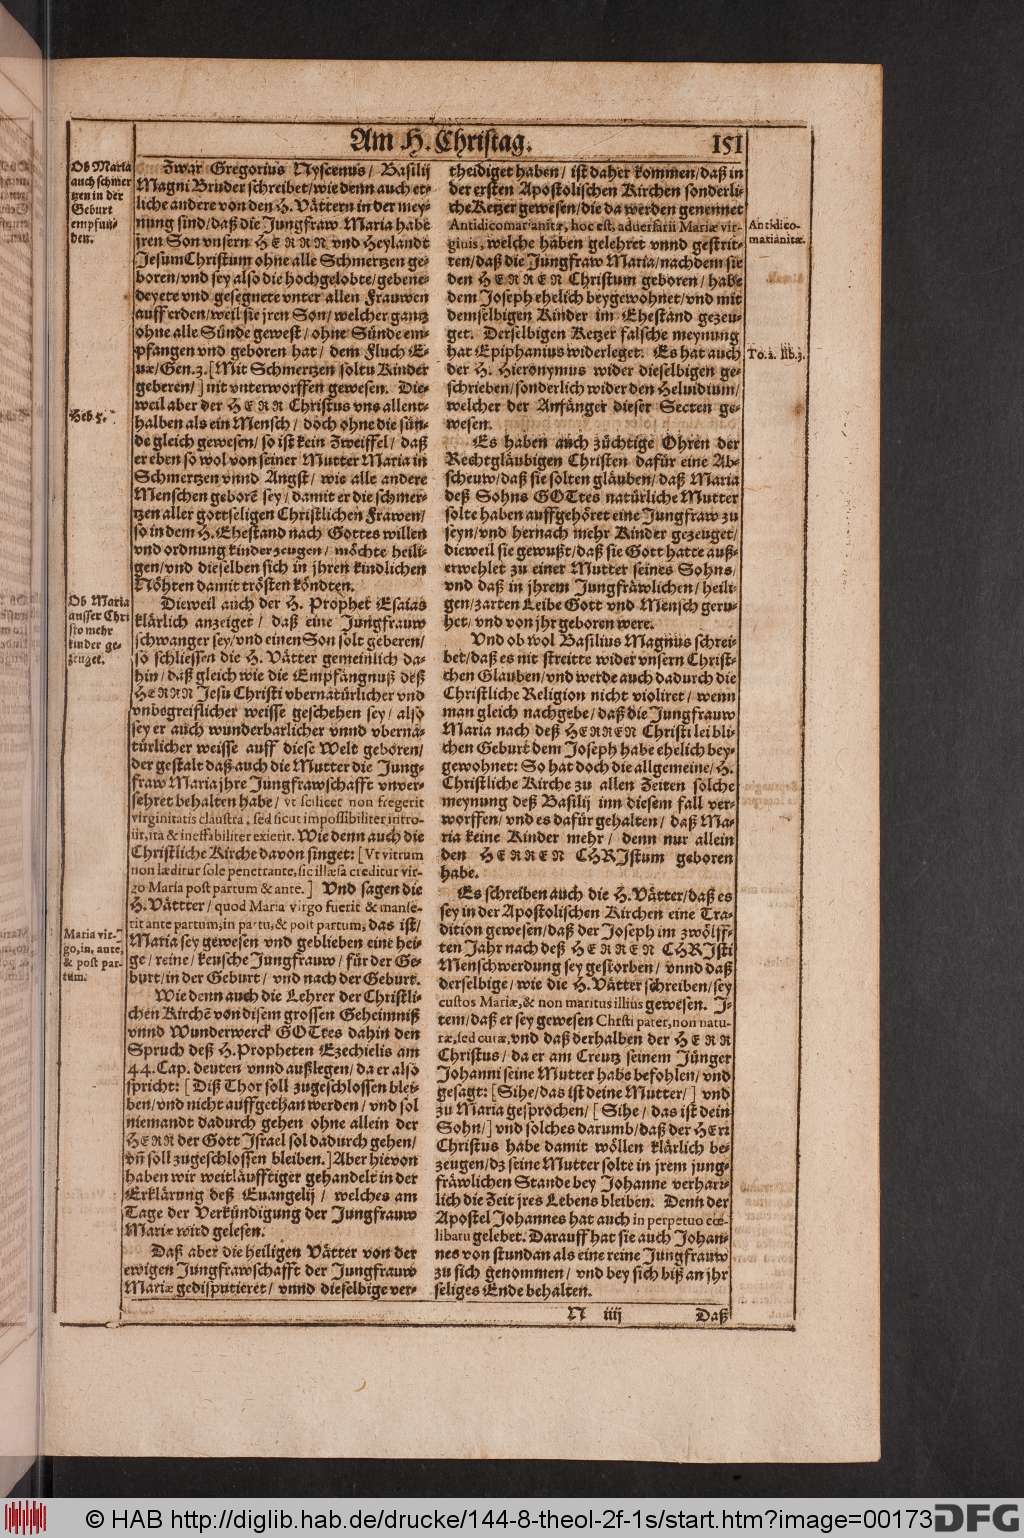 Am H. Christag.
151
Ob Maria
auch schmer
tzen in der
Geburt
empfun-
den.
Heb. 5.
Ob Maria
ausser Chri
sto mehr
kinder ge-
zeuget.
Maria vir-
go, in, ante,
& post par-
tum.
Zwar Gregorius Nyssenus/ Basilij
Magni Bruder schreibet/ wie denn auch et-
liche andere von den H. Vättern in der mey-
nung sind/ daß die Jungfraw Maria habe
jren Son vnsern HERRN vnd Heylandt
Jesum Christum ohne alle Schmertzen ge-
boren/ vnd sey also die hochgelobte/ gebene-
deyete vnd gesegnete vnter allen Frauwen
auff erden/ weil sie jren Son/ welcher gantz
ohne alle Sünde gewest/ ohne Sünde em-
pfangen vnd geboren hat/ dem Fluch E-
uæ/ Gen. 3. [Mit Schmertzen soltu Kinder
geberen/] nit vnterworffen gewesen. Die-
weil aber der HERR Christus vns allent-
halben als ein Mensch/ doch ohne die sün-
de gleich gewesen/ so ist kein Zweiffel/ daß
er eben so wol von seiner Mutter Maria in
Schmertzen vnnd Angst/ wie alle andere
Menschen geborē sey/ damit er die schmer-
tzen aller gottseligen Christlichen Frawen/
so in dem H. Ehestand nach Gottes willen
vnd ordnung kinder zeugen/ möchte heili-
gen/ vnd dieselben sich in jhren kindlichen
Nöhten damit trösten köndten.
Dieweil auch der H. Prophet Esaias
klärlich anzeiget/ daß eine Jungfrauw
schwanger sey/ vnd einen Son solt geberen/
so schliessen die H. Vätter gemeinlich da-
hin/ daß gleich wie die Empfängnuß deß
HERRN Jesu Christi vbernatürlicher vnd
vnbegreiflicher weisse geschehen sey/ also
sey er auch wunderbarlicher vnnd vberna-
türlicher weisse auff diese Welt geboren/
der gestalt daß auch die Mutter die Jung-
fraw Maria jhre Jungfrawschafft vnver-
sehret behalten habe/ vt scilicet non fregerit
virginitatis claustra, sed sicut impossibiliter intro-
iit, ita & ineffabiliter exierit. Wie denn auch die
Christliche Kirche davon singet: [Vt vitrum
non læditur sole penetrante, sic illæsa creditur vir-
go Maria post partum & ante.] Vnd sagen die
H. Vättter/ quod Maria virgo fuerit & manse-
rit ante partum, in partu, & post partum, das ist/
Maria sey gewesen vnd geblieben eine hei-
ge/ reine/ keusche Jungfrauw/ für der Ge-
burt/ in der Geburt/ vnd nach der Geburt.
Wie denn auch die Lehrer der Christli-
chen Kirchē von disem grossen Geheimniß
vnnd Wunderwerck GOttes dahin den
Spruch deß H. Propheten Ezechielis am
44. Cap. deuten vnnd außlegen/ da er also
spricht: [Diß Thor soll zugeschlossen blei-
ben/ vnd nicht auffgethan werden/ vnd sol
niemandt dadurch gehen ohne allein der
HERR der Gott Israel sol dadurch gehen/
vñ soll zugeschlossen bleiben.] Aber hievon
haben wir weitläufftiger gehandelt in der
Erklärung deß Euangelij/ welches am
Tage der Verkündigung der Jungfrauw
Mariæ wird gelesen.
Daß aber die heiligen Vätter von der
ewigen Jungfrawschafft der Jungfrauw
Mariæ gedisputieret/ vnnd dieselbige ver-
theidiget haben/ ist daher kommen/ daß in
der ersten Apostolischen Kirchen sonderli-
che Ketzer gewesen/ die da werden genennet
Antidicomarianitæ, hoc est, aduersarii Mariæ vir-
ginis, welche haben gelehret vnnd gestrit-
ten/ daß die Jungfraw Maria/ nachdem sie
den HERREN Christum geboren/ habe
dem Joseph ehelich beygewohnet/ vnd mit
demselbigen Kinder im Ehestand gezeu-
get. Derselbigen Ketzer falsche meynung
hat Epiphanius widerleget. Es hat auch
der H. Hieronymus wider dieselbigen ge-
schrieben/ sonderlich wider den Heluidium/
welcher der Anfänger dieser Secten ge-
wesen.
Es haben auch züchtige Ohren der
Rechtgläubigen Christen dafür eine Ab-
scheuw/ daß sie solten gläuben/ daß Maria
deß Sohns GOttes natürliche Mutter
solte haben auffgehöret eine Jungfraw zu
seyn/ vnd hernach mehr Kinder gezeuget/
dieweil sie gewußt/ daß sie Gott hatte auß-
erwehlet zu einer Mutter seines Sohns/
vnd daß in jhrem Jungfräwlichen/ heili-
gen/ zarten Leibe Gott vnd Mensch geru-
het/ vnd von jhr geboren were.
Vnd ob wol Basilius Magnus schrei-
bet/ daß es nit streitte wider vnsern Christ-
chen Glauben/ vnd werde auch dadurch die
Christliche Religion nicht violiret/ wenn
man gleich nachgebe/ daß die Jungfrauw
Maria nach deß HERREN Christi leibli-
chen Geburt dem Joseph habe ehelich bey-
gewohnet: So hat doch die allgemeine/ H.
Christliche Kirche zu allen Zeiten solche
meynung deß Basilij inn diesem fall ver-
worffen/ vnd es dafür gehalten/ daß Ma-
ria keine Kinder mehr/ denn nur allein
den HERREN CHRJstum geboren
habe.
Es schreiben auch die H. Vätter/ daß es
sey in der Apostolischen Kirchen eine Tra-
dition gewesen/ daß der Joseph im zwölff-
ten Jahr nach deß HERREN CHRJsti
Menschwerdung sey gestorben/ vnnd daß
derselbige/ wie die H. Vätter schreiben/ sey
custos Mariæ, & non maritus illius gewesen. J-
tem/ daß er sey gewesen Christi pater, non natu-
ræ, sed curæ, vnd daß derhalben der HERR
Christus/ da er am Creutz seinem Jünger
Johanni seine Mutter habe befohlen/ vnd
gesagt: [Sihe/ das ist deine Mutter/] vnd
zu Maria gesprochen/ [Sihe/ das ist dein
Sohn/] vnd solches darumb/ daß der HErr
Christus habe damit wöllen klärlich be-
zeugen/ dz seine Mutter solte in jrem jung-
fräwlichen Stande bey Johanne verharr-
lich die Zeit jres Lebens bleiben. Denn der
Apostel Johannes hat auch in perpetuo cœ-
libatu gelebet. Darauff hat sie auch Johan-
nes von stundan als eine reine Jungfrauw
zu sich genommen/ vnd bey sich biß an jhr
seliges Ende behalten.
Antidico-
marianitæ.
To. 2. lib. 3.
N iiij
Daß
© HAB http://diglib.hab.de/drucke/144-8-theol-2f-1s/start.htm?image=00173
DFG